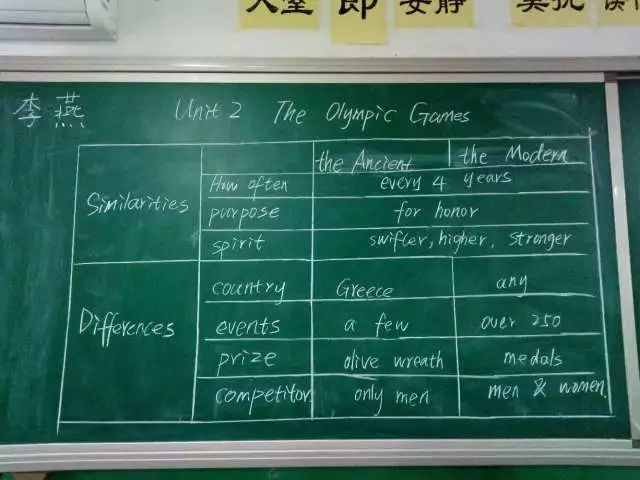 入室 即 安静
李燕 Unit 2 The Olympic Games
the Ancient the Modern
Similarities
How often every 4 years
purpose for honor
spirit swifter, higher, stronger
Differences
country Greece any
events a few over 250
prize olive wreath medals
competitor only men men & women.